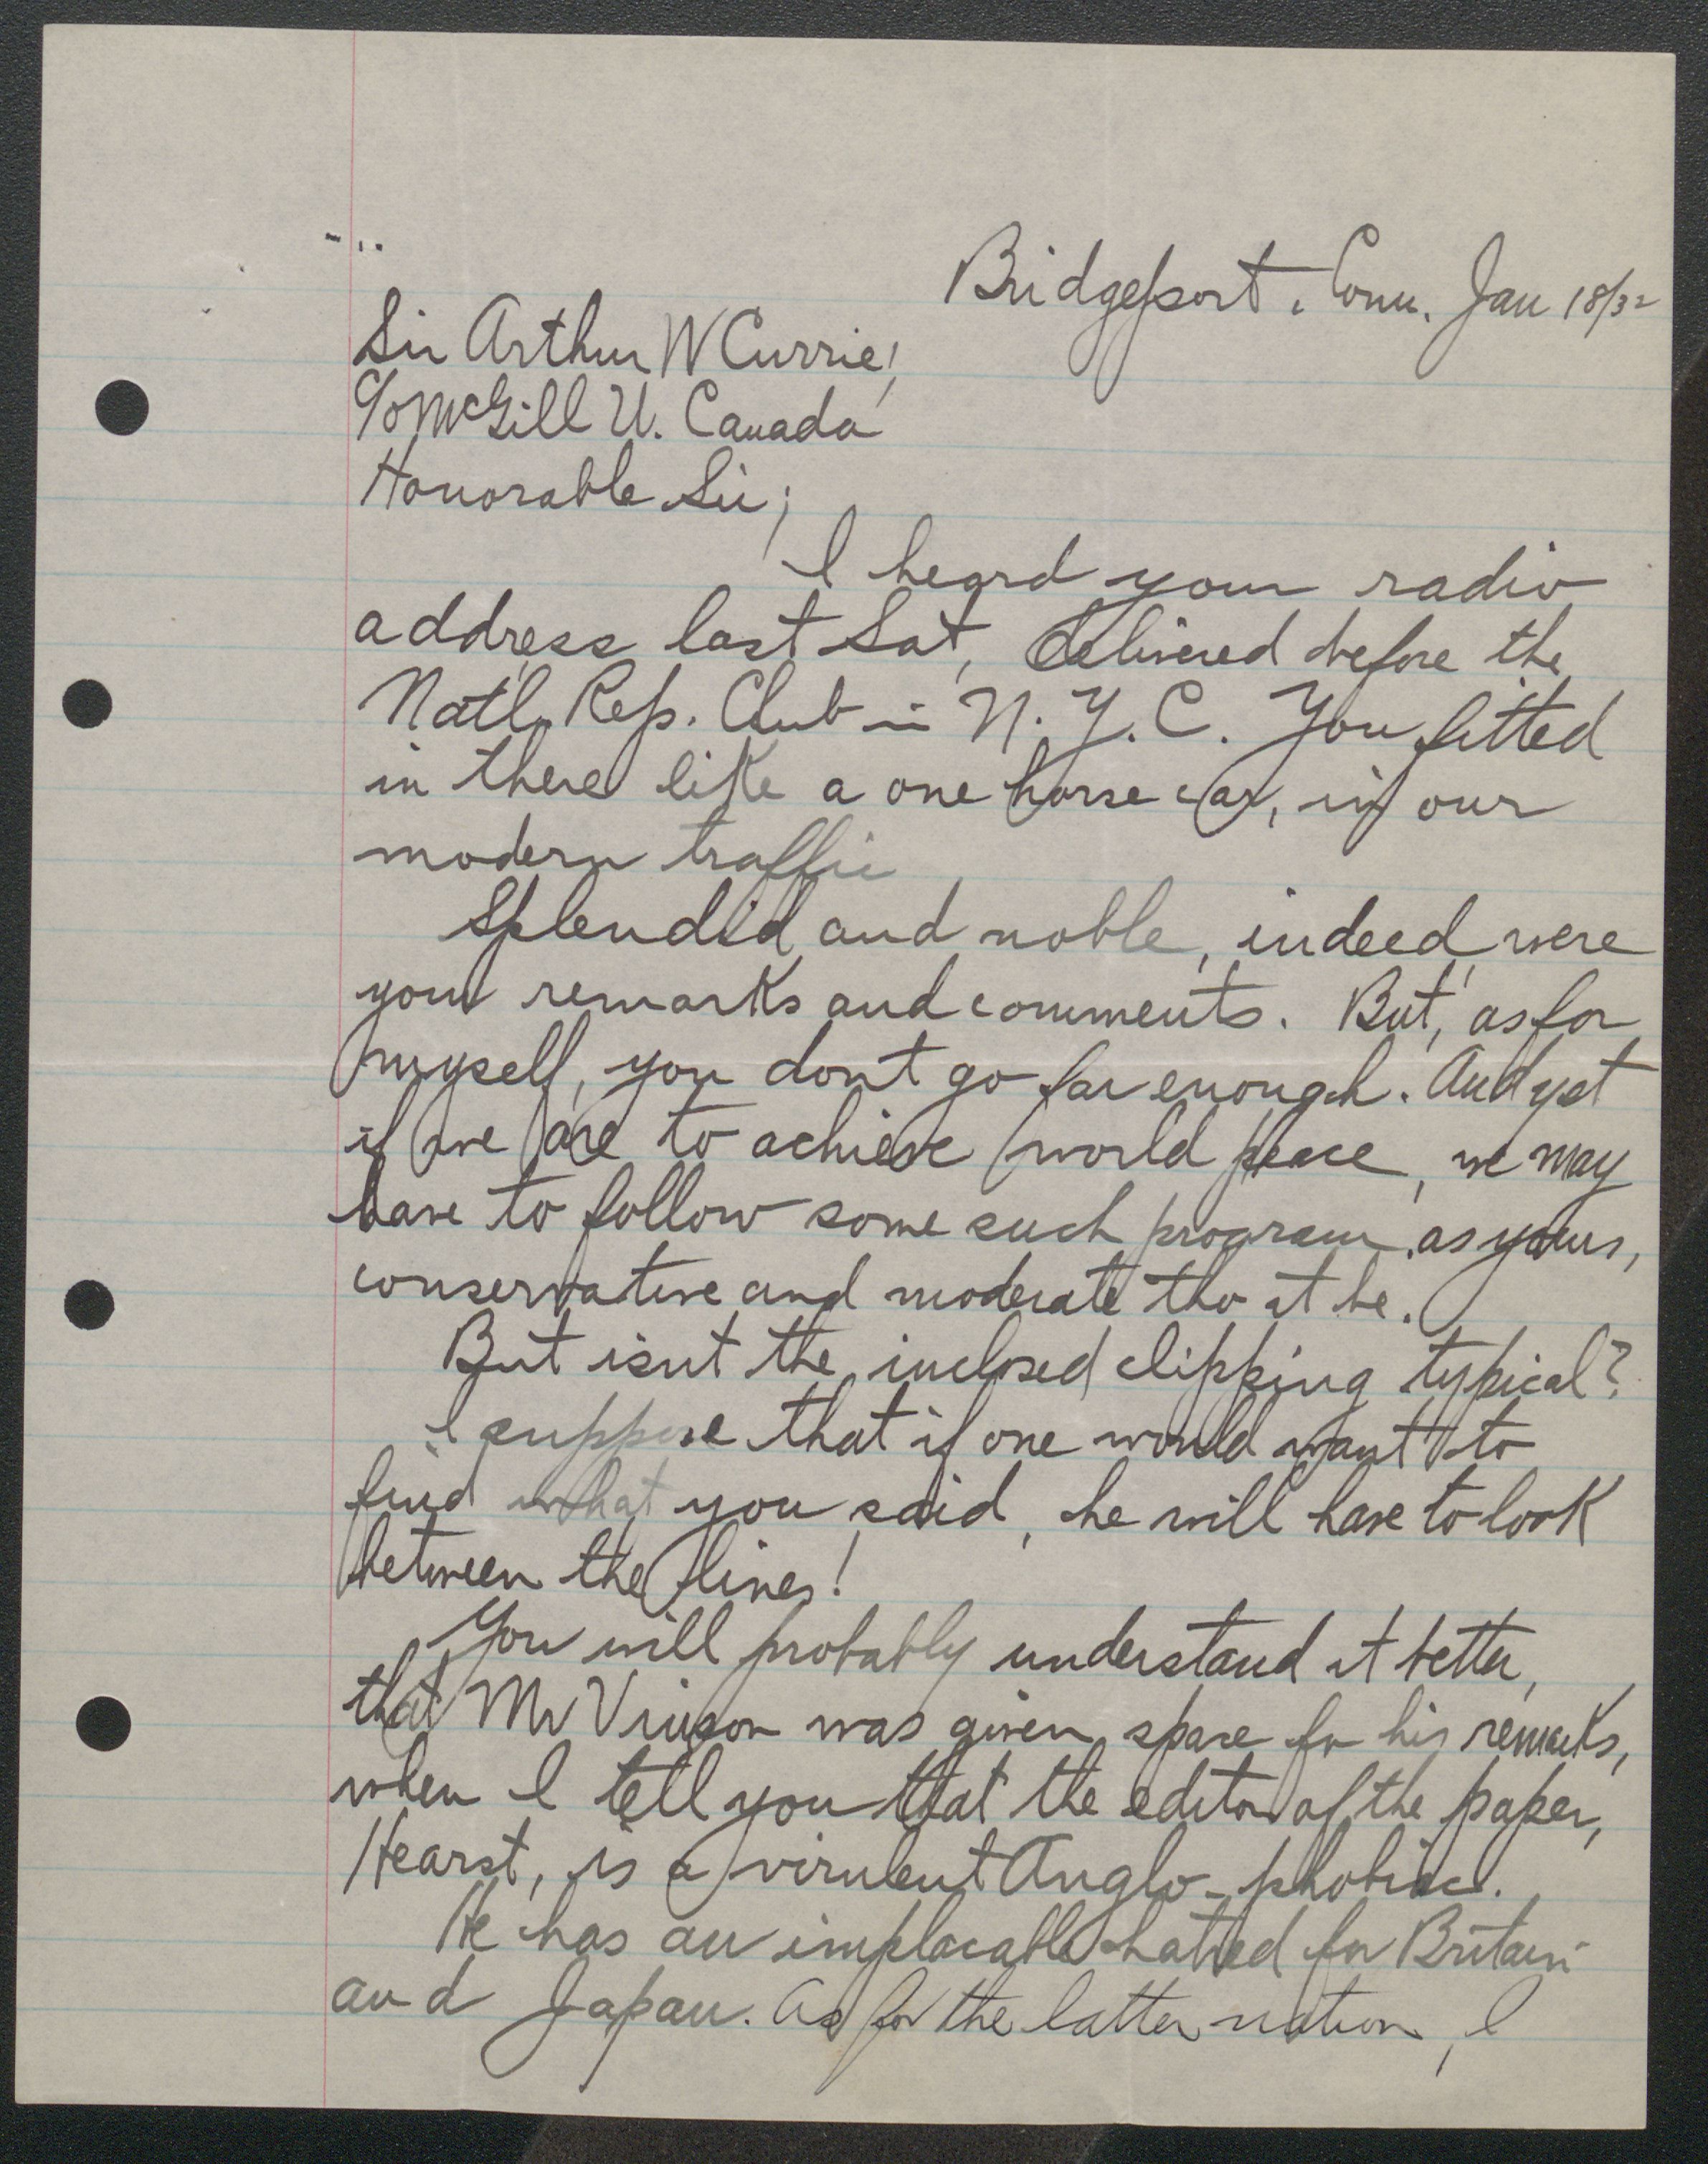 Bridgeport, Conn. Jan 18/32
Sir Arthur W Currie,
c/o McGill U. Canada
Honorable Sir;
I heard your radio
address last Sat, delivered before the
Natl. Rep. Club in N.Y.C. You fitted
in there like a one horse car, in our
modern traffic
Splendid and noble, indeed, were
your remarks and comments. But, as for
myself, you dont go far enough. And yet
if we are to achieve world peace, we may
have to follow some such program, as yours,
conservative and moderate tho it be.
But isnt the inclosed clipping typical?
I suppose that if one would want to
find what you said, he will have to look
between the lines!
You will probably understand it better,
that Mr Vinson was given space for his remarks,
when I tell you that the editor of the paper,
Hearst, is a virulent Anglo-phobiac.
He has an implacable hatred for Britain
and Japan. As for the latter nation, I